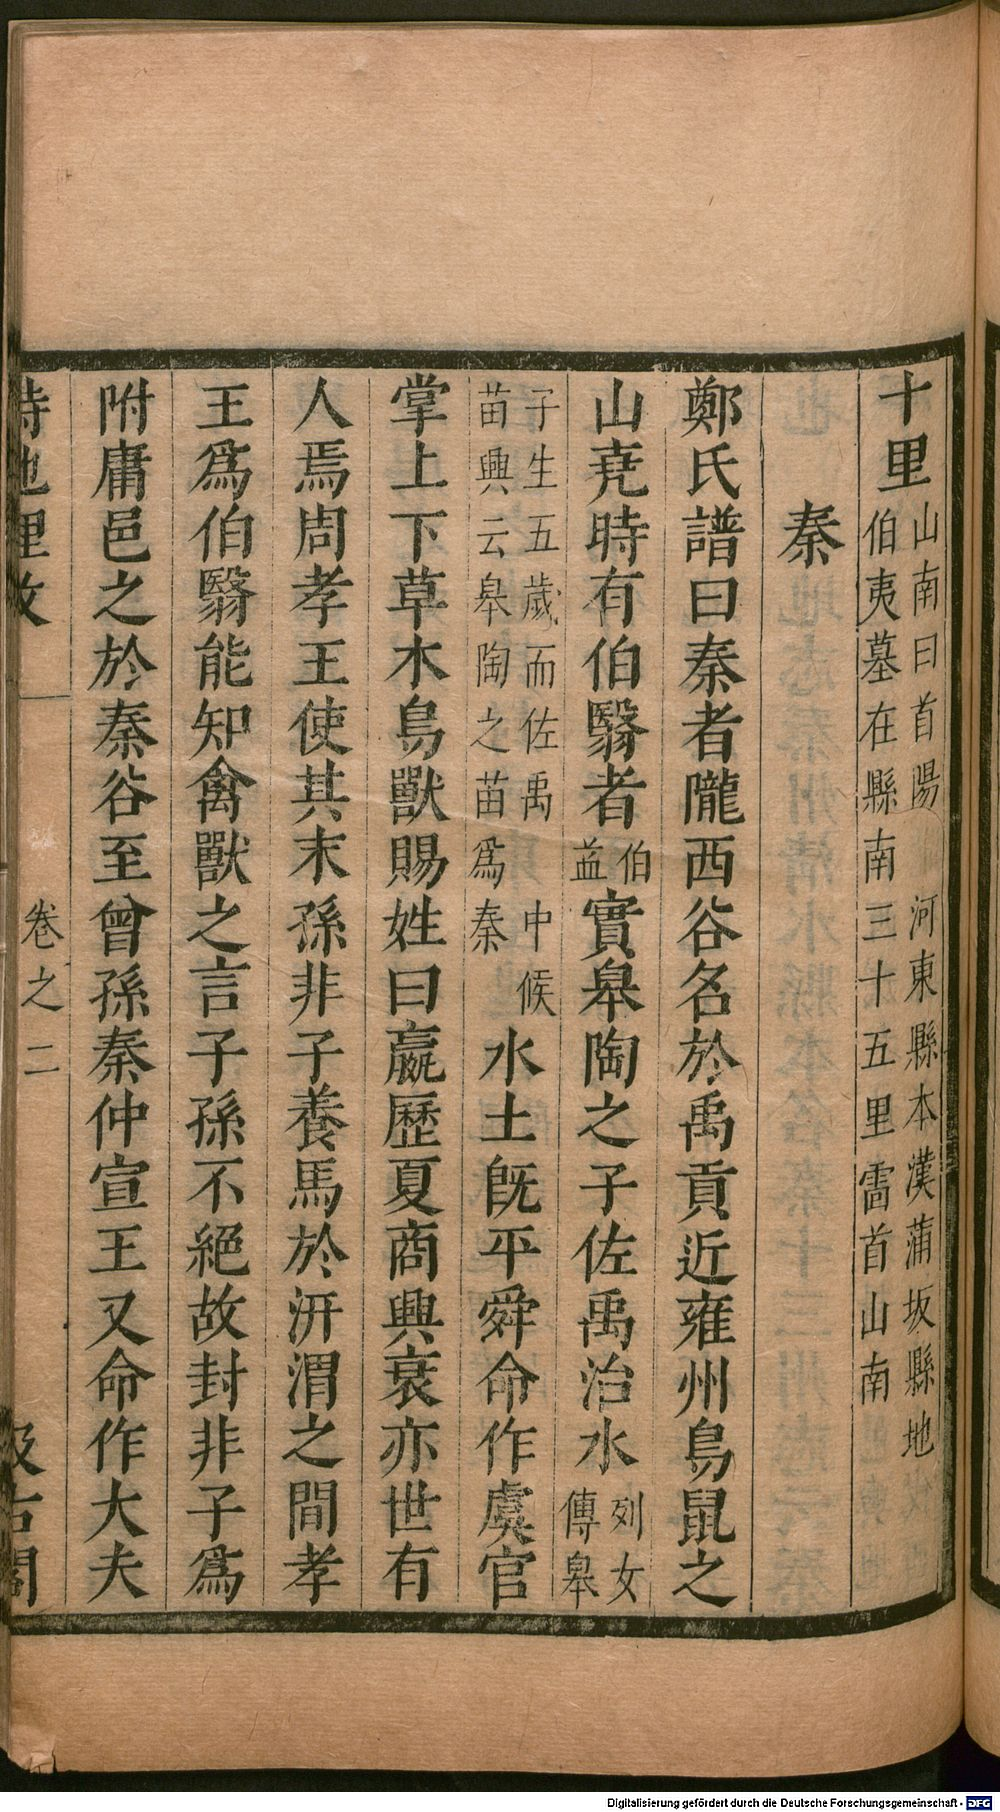 十里山南曰首陽 河東縣本漢蒲坂縣地
伯夷墓在縣南三十五里雷首山南
秦
鄭氏譜曰秦者隴西谷名於禹貢近雍州鳥鼠之
山堯時有伯翳者伯益實皋陶之子佐禹治水列女傳皋
子生五歲而佐禹 中候
苗興云皋陶之苗爲秦
水土旣平舜命作虞官
掌上下草木鳥獸賜姓曰嬴歷夏商興衰亦世有
人焉周孝王使其末孫非子養馬於汧渭之間孝
王爲伯翳能知禽獸之言子孫不絕故封非子爲
附庸邑之於秦谷至曾孫秦仲宣王又命作大夫
詩地理攷 卷之二 汲古閣
Digitalisierung gefördert durch die Deutsche Forschungsgemeinschaft - DFG